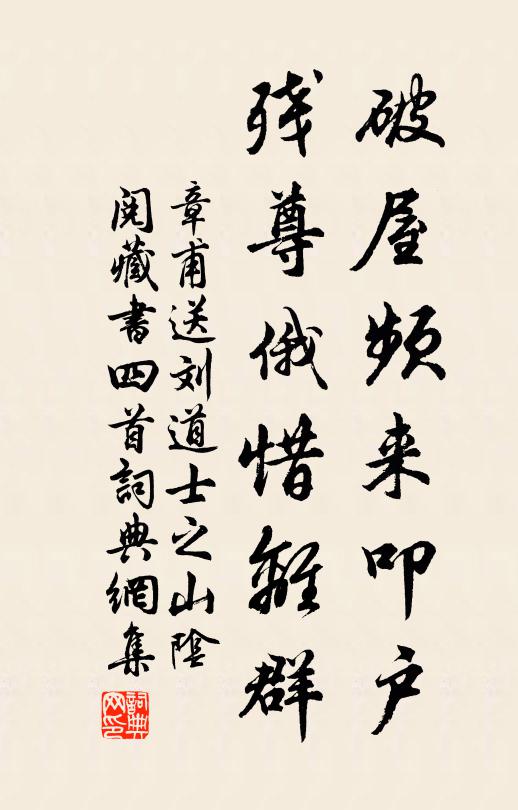 破屋频来叩户
残尊俄惜離群
章甫送刘道士之山陰
閱藏書四首詞典網集
詞典网印